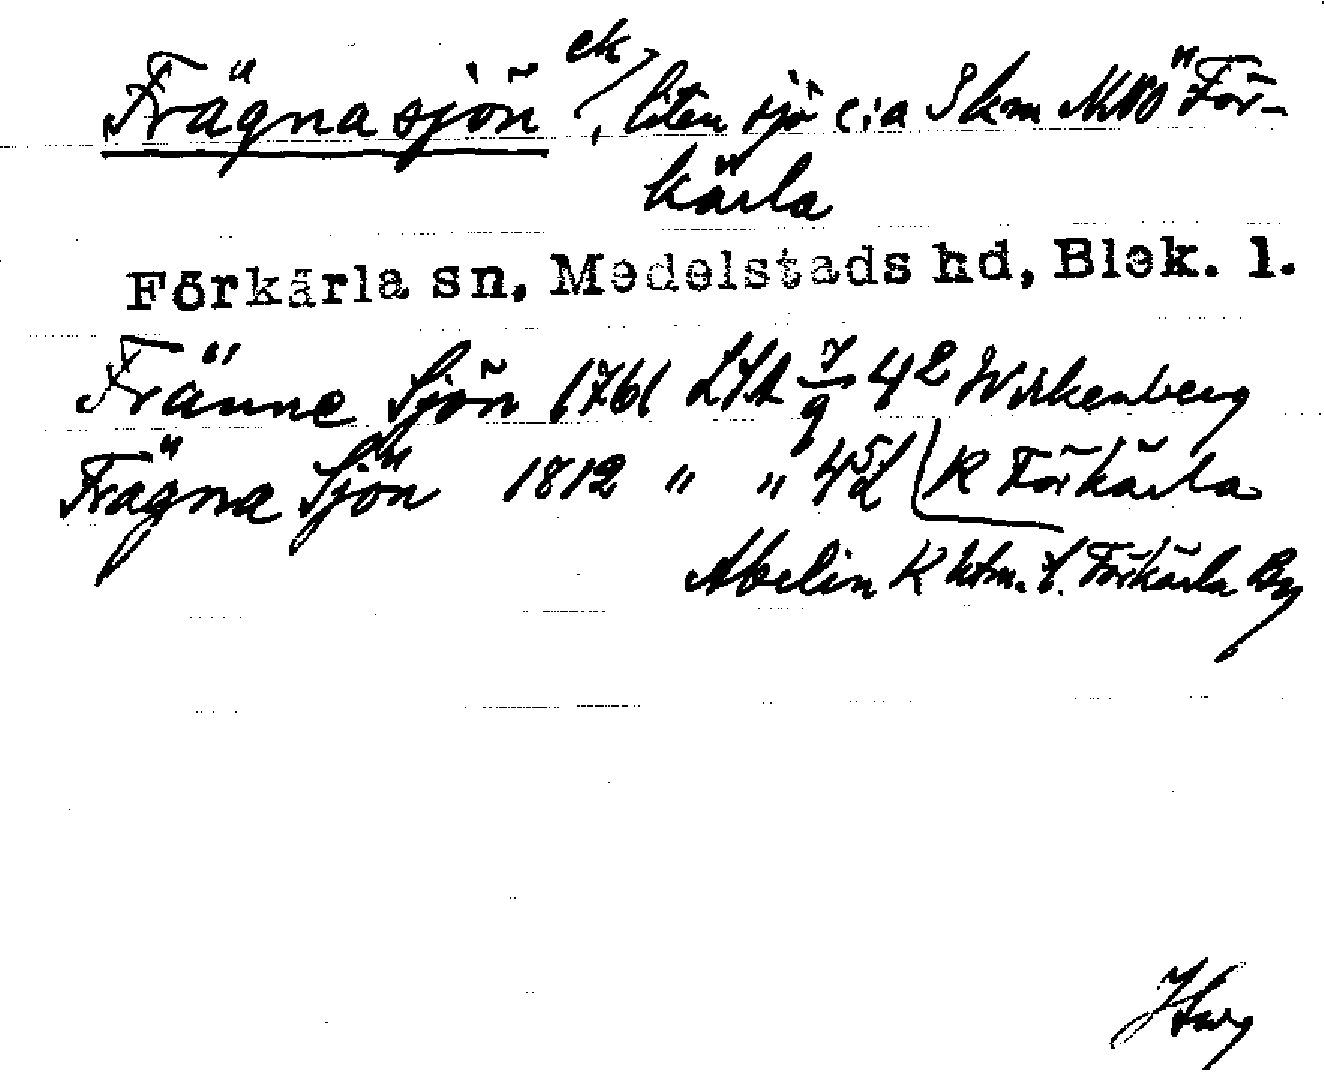 Frägnasjön ek, liten sjö c:a 3 km NNO För-
kärla
Förkärla sn, Medelstads hd, Blek. l.
Fränne Sjön 1761 LSA 7/9 42 Wirkenberg
Frägna Sjön 1812 " " 45d K Förkärla
Abelin K ktm. t. Förkärla By